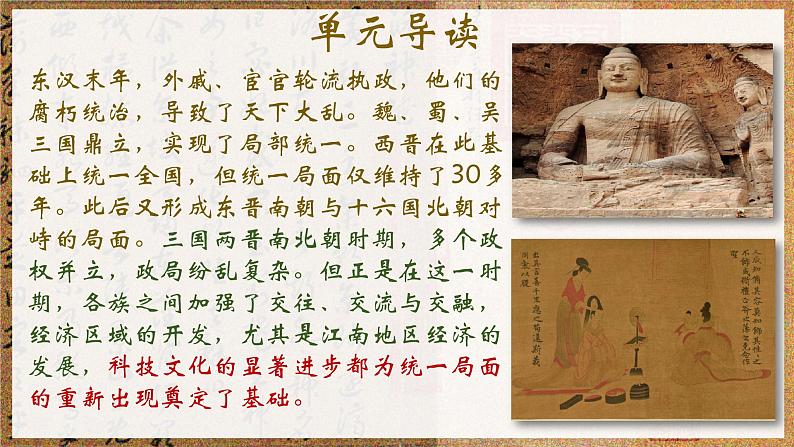 单元导读
东汉末年，外戚、宦官轮流执政，他们的
腐朽统治，导致了天下大乱。魏、蜀、吴
三国鼎立，实现了局部统一。西晋在此基
础上统一全国，但统一局面仅维持了30多
年。此后又形成东晋南朝与十六国北朝对
峙的局面。三国两晋南北朝时期，多个政
权并立，政局纷乱复杂。但正是在这一时
期，各族之间加强了交往、交流与交融，
经济区域的开发，尤其是江南地区经济的
发展，科技文化的显著进步都为统一局面
的重新出现奠定了基础。
人咸知脩其容莫知飾其性性之
不飾或愆禮正斧之藻之克念作
聖
出其言善千里應之苟違斯義
同衾以疑